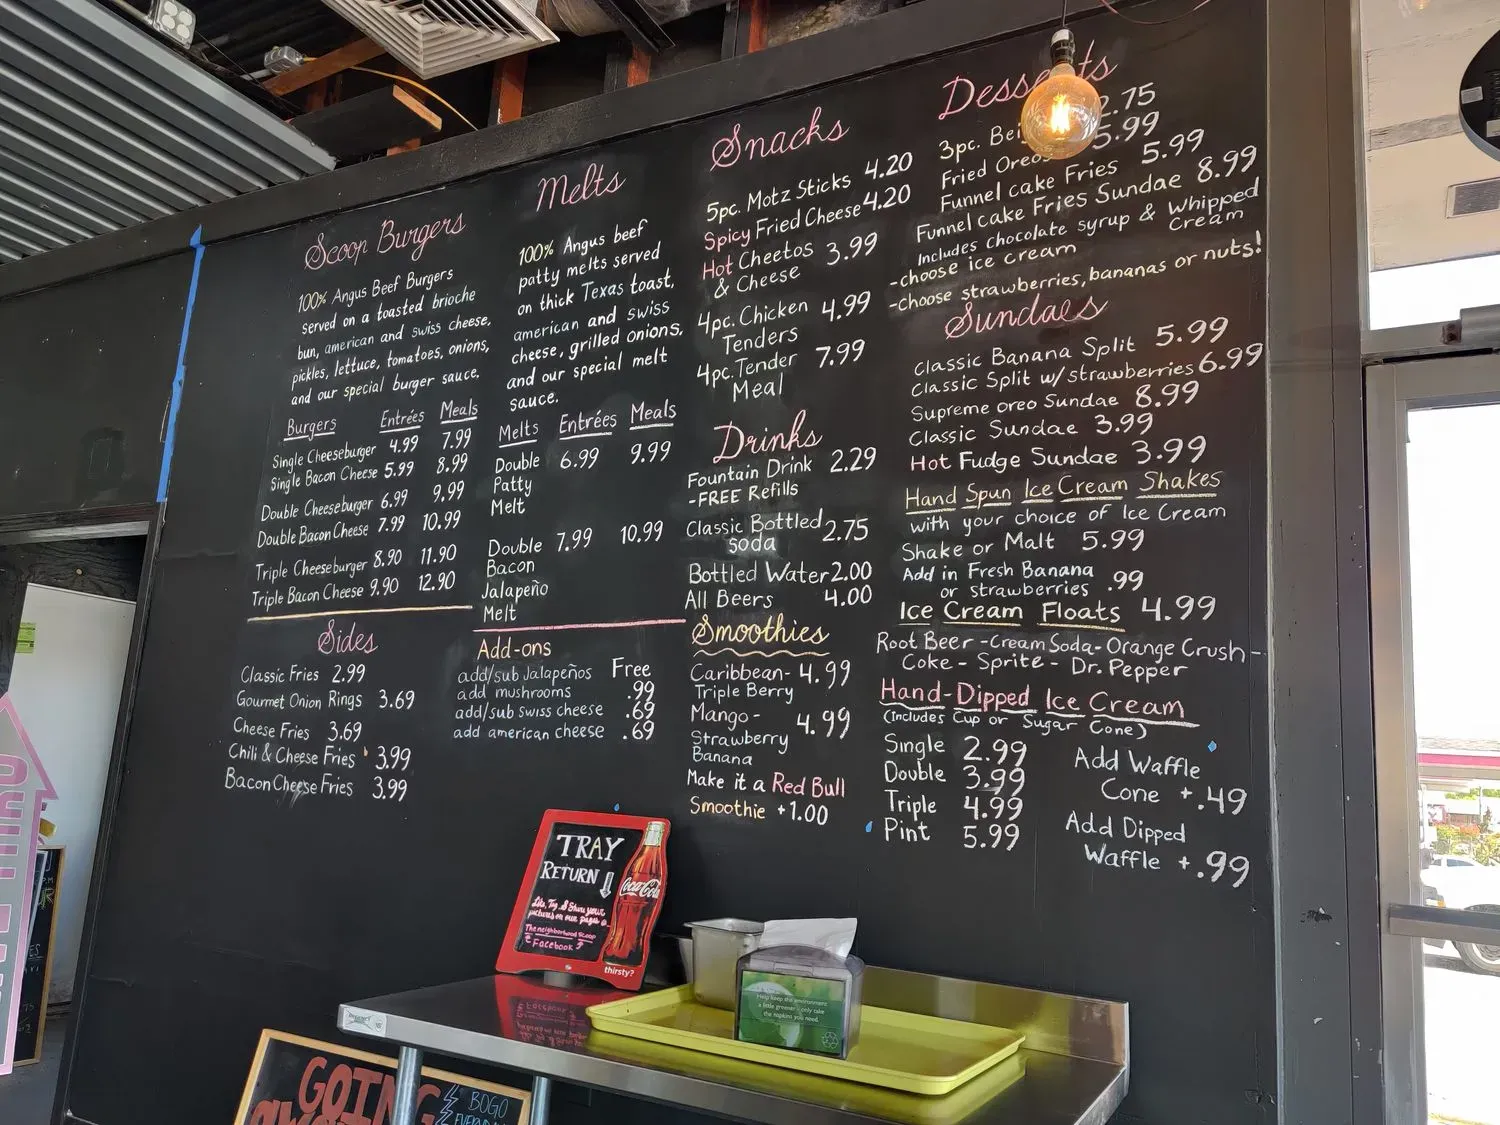 Scoop Burgers
100% Angus Beef Burgers
served on a toasted brioche
bun, american and swiss cheese,
pickles, lettuce, tomatoes, onions,
and our special burger sauce.
Burgers Entrées Meals
Single Cheeseburger 4.99 7.99
Single Bacon Cheese 5.99 8.99
Double Cheeseburger 6.99 9.99
Double Bacon Cheese 7.99 10.99
Triple Cheeseburger 8.90 11.90
Triple Bacon Cheese 9.90 12.90
Sides
Classic Fries 2.99
Gourmet Onion Rings 3.69
Cheese Fries 3.69
Chili & Cheese Fries 3.99
Bacon Cheese Fries 3.99
Melts
100% Angus beef
patty melts served
on thick Texas toast,
american and swiss
cheese, grilled onions,
and our special melt
sauce.
Melts Entrées Meals
Double 6.99 9.99
Patty
Melt
Double 7.99 10.99
Bacon
Jalapeño
Melt
Add-ons
add/sub Jalapeños Free
add mushrooms .99
add/sub swiss cheese .69
add american cheese .69
Snacks
5pc. Motz Sticks 4.20
Spicy Fried Cheese 4.20
Hot Cheetos 3.99
& Cheese
4pc. Chicken 4.99
Tenders
4pc. Tender 7.99
Meal
Drinks
Fountain Drink 2.29
-FREE Refills
Classic Bottled 2.75
Soda
Bottled Water 2.00
All Beers 4.00
Smoothies
Caribbean- 4.99
Triple Berry
Mango- 4.99
Strawberry
Banana
Make it a Red Bull
Smoothie +1.00
Desserts
3pc. 2.75
Fried Oreos 5.99
Funnel cake Fries 5.99
Funnel cake Fries Sundae 8.99
Includes chocolate syrup & Whipped
Cream
-choose ice cream
-choose strawberries, bananas or nuts!
Sundaes
Classic Banana Split 5.99
Classic Split w/strawberries 6.99
Supreme oreo Sundae 8.99
Classic Sundae 3.99
Hot Fudge Sundae 3.99
Hand Spun Ice Cream Shakes
with your choice of Ice Cream
Shake or Malt 5.99
Add in Fresh Banana
or strawberries .99
Ice Cream Floats 4.99
Root Beer - Cream Soda - Orange Crush -
Coke - Sprite - Dr. Pepper
Hand-Dipped Ice Cream
(Includes Cup or Sugar Cone)
Single 2.99
Double 3.99
Triple 4.99
Pint 5.99
Add Waffle
Cone +.49
Add Dipped
Waffle +.99
TRAY
RETURN
Like, Tag & Share your
pictures on our pages
The neighborhood Scoop
Facebook
Coca-Cola
thirsty?
Help keep the environment
a little greener - only take
the napkins you need.
GOING
BOGO